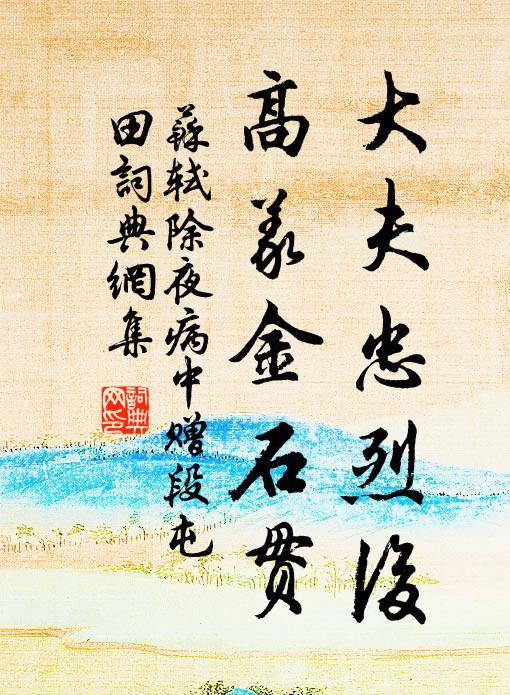 大夫忠烈後
高義金石貫
蘇軾除夜病中贈段屯
田詞典網集
詞典
网印